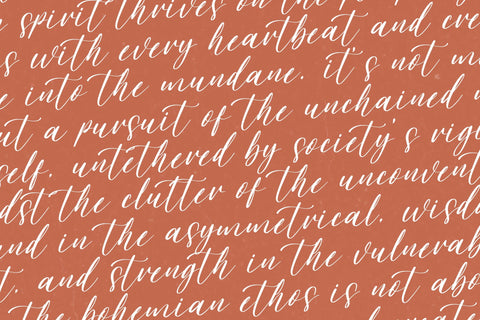 spirit thrives on the
s with every heartbeat and eve
e into the mundane. it's not m
ut a pursuit of the unchained
self. untethered by society's rig
idst the clutter of the unconvent
und in the asymmetrical. wisdo
t. and strength in the vulnerab
the bohemian ethos is not abo